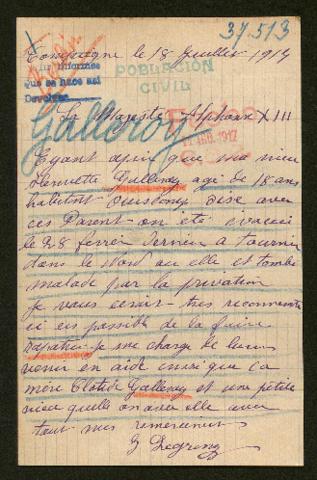 37,513
Compiegne le 18 Juillet 1917
que se hace así
Devolver
POBLACIÓN
CIVIL
Sa Majesté Alphonse XIII
Galleroy
17 1917
Eyant apris que ma niece
Henriette Galleroy agé de 18 ans
habitant
ces Parent on été évacué
le 28 fevrier dernier a Tournai
dans le Nord ou elle et tombé
malade par la privation
je vous serait tres reconnaissante
ci es possible de la faire
rapatrier je me charge de leur
venir en aide insi que ca
mère Clotilde Galleroy et une petite
niece quelle on avec elle avec
tout mes remerciement